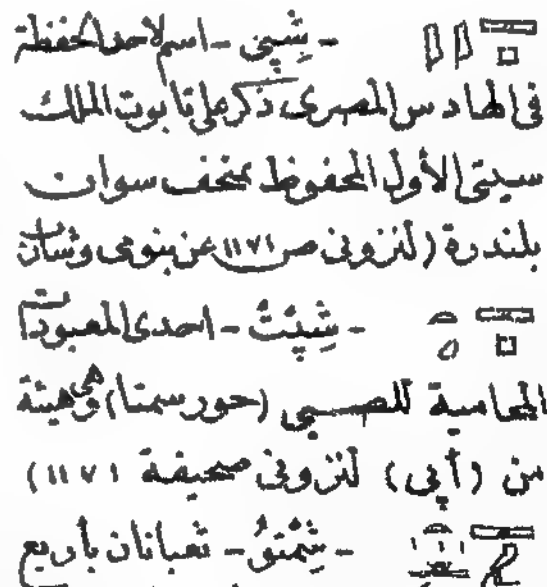 - شِپِى - اسم لأحد الحفظة
فى الهادس المصرى ذكر على تابوت الملك
سيتى الأول المحفوظ بمخف سوان
بلندرة (لنزونى ص ١١٧١ عن بنومى وشاب
- شِپِتُ - احدى المعبودات
الحامية للصبى (حورسمتا) وهى هيئة
من (أپى) لنزونى صحيفة ١١٧١)
- شِمْتىُ - ثعبانان بأربع